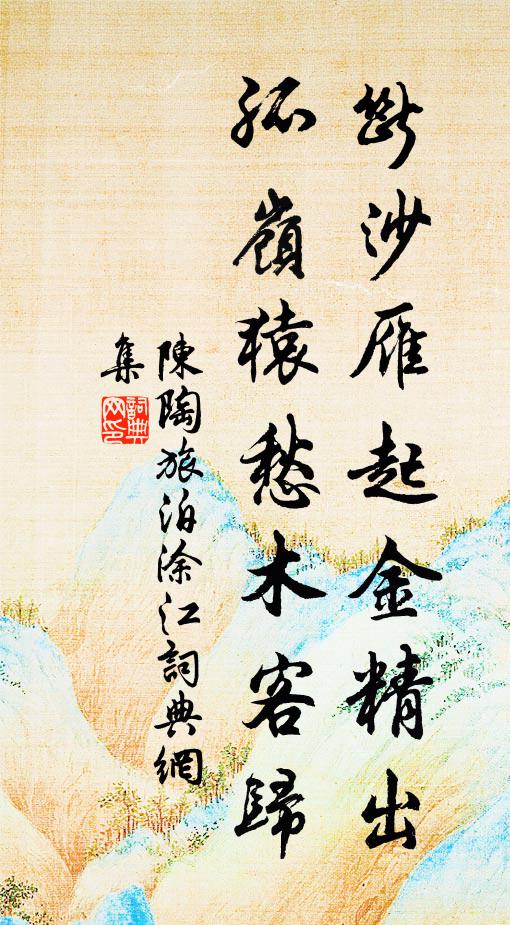 斷沙雁起金精出
孤嶺猿愁木客歸
陳陶旅泊涂江詞典網
集
詞典
网印